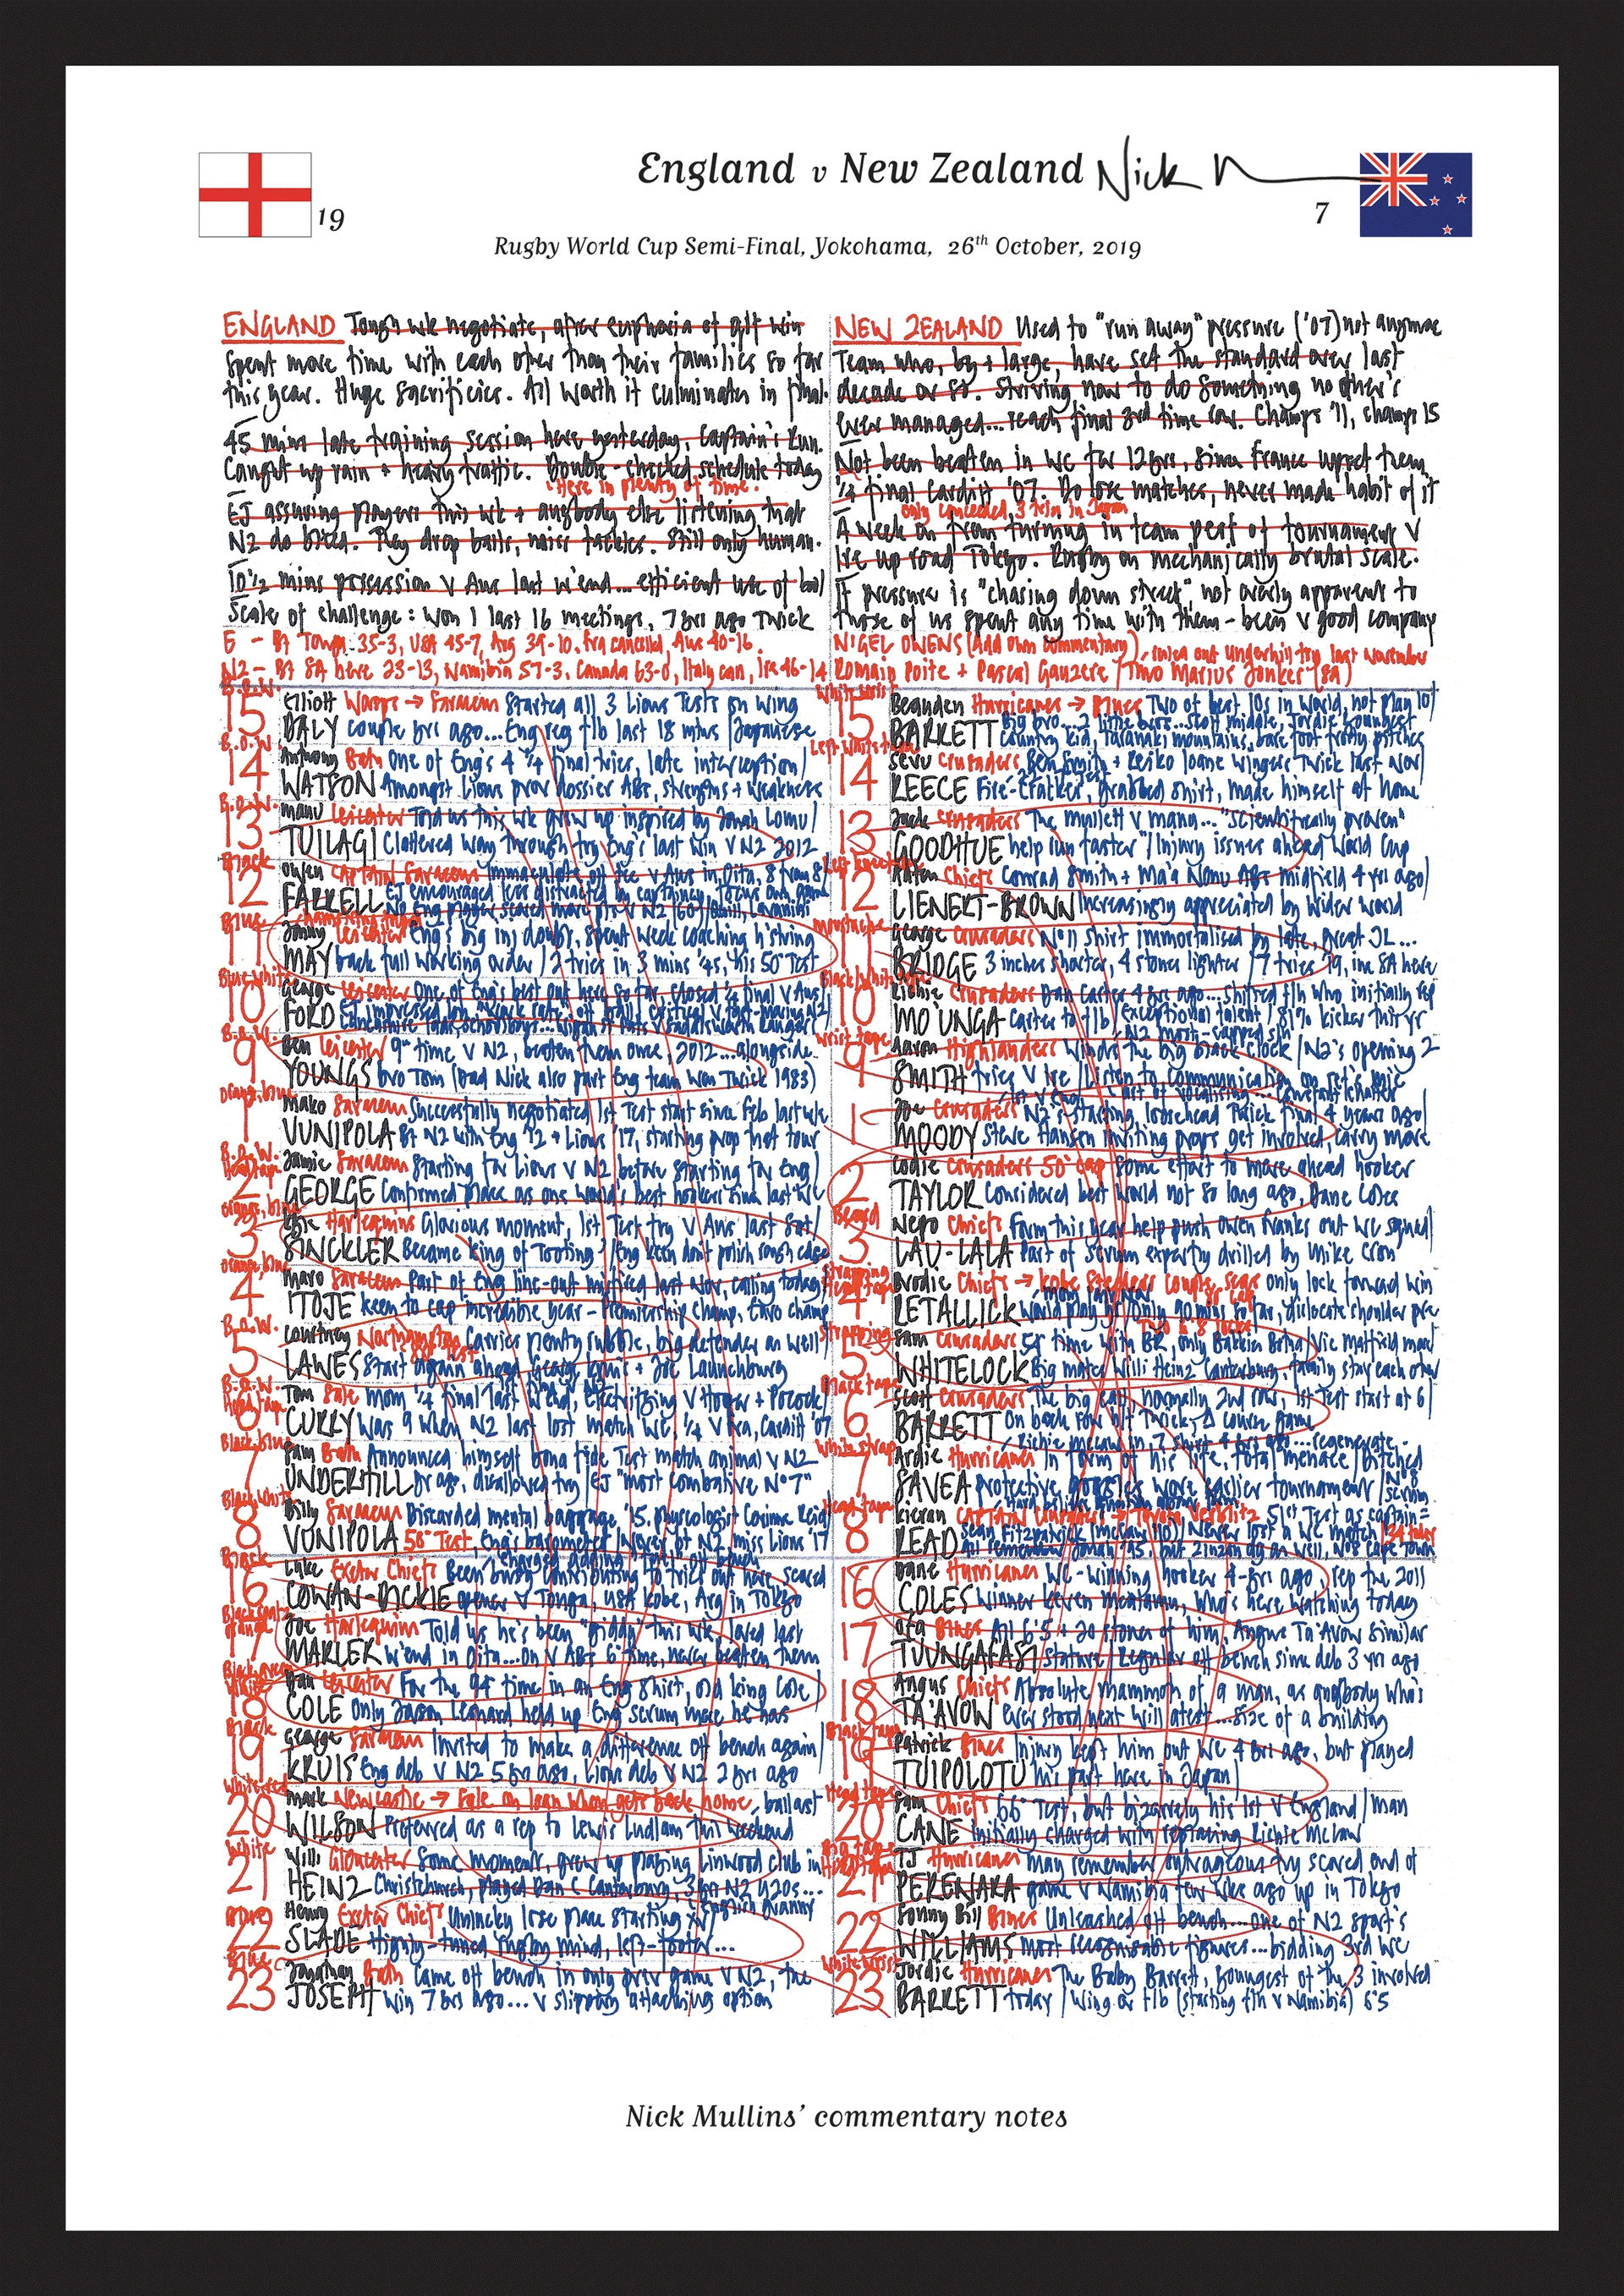 England v New Zealand
19
7
Rugby World Cup Semi-Final, Yokohama, 26th October, 2019
ENGLAND Tough wk negotiate, after euphoria of qtf win
Spent more time with each other than their families so far
this year. Huge sacrificies. All worth it culminates in final.
45 mins late training session here yesterday, Captain's Run.
Caught up rain + heavy traffic. Double-checked schedule today
Here in plenty of time.
EJ assuring players this wk + anybody else listening that
NZ do bleed. They drop balls, miss tackles. Still only human.
10½ mins possession v Aus last w'end... efficient use of ball
Scale of challenge: won 1 last 16 meetings, 7 yrs ago Twick
E - Bt Tonga 35-3, USA 45-7, Arg 39-10. Fra cancelled, Aus 40-16.
NZ - Bt SA here 23-13, Namibia 57-3. Canada 63-0, Italy can, Ire 46-14
NEW ZEALAND Used to "run away" pressure ('07) not anymore
Team who, by + large, have set the standard over last
decade or so. Striving now to do something no other's
ever managed... reach final 3rd time row. Champs '11, champs 15
Not been beaten in WC for 12 yrs, since France upset them
¼ final Cardiff '07. Do lose matches, never made habit of it
only conceded 3 tries in Japan
A week on from turning in team perf of tournament v
Ire up road Tokyo. Rugby on mechanically brutal scale.
If pressure is "chasing down street", not overly apparent to
those of us spent any time with them - been v good company
NIGEL OWENS (Add own commentary), ruled out Underhill try last November
Romain Poite + Pascal Gauzere / Tmo Marius Jonker (SA)
15 Elliott Wasps → Saracens Started all 3 Lions Tests on wing
DALY couple yrs ago... Eng reg flb last 18 mths / Japanese
14 Anthony Bath One of Eng's 4 ¼ final tries, late interception
WATSON Amongst Lions prov dossier ABs, strengths + weakness
13 Manu Leicester Told us this wk grew up inspired by Jonah Lomu
TUILAGI Clattered way through try Eng's last win v NZ 2012
Black
12 Owen CAPTAIN Saracens Immaculate off tee v Aus in Oita, 8 from 8
FARRELL EJ encouraged less distracted by captaincy, focus own game
Blue
11 Jonny Leicester Eng's big inj doubt, spent week coaching h'string
MAY back full working order / 2 tries in 3 mins ¼s, his 50th Test
10 George Leicester One of Eng's best out here so far, closed ¼ final v Aus
FORD
9 Ben Leicester 9th time v NZ, beaten them once, 2012... alongside
YOUNGS bro Tom (Dad Nick also part Eng team won Twick 1983)
1 Mako Saracens Successfully negotiated 1st Test start since Feb last wk
VUNIPOLA Bt NZ with Eng '12 + Lions '17, starting prop that tour
2 Jamie Saracens Starting for Lions v NZ before starting for Eng
GEORGE Confirmed place as one world's best hookers since last WC
3 Kyle Harlequins Glorious moment, 1st Test try v Aus last Sat
SINCKLER Became King of Tooting / Eng keen don't polish rough edges
4 Maro Saracens Part of Eng line-out misfired last Nov, calling today
ITOJE keen to cap incredible year - Premiership champ, Euro champ
5 Courtney Northampton Carries plenty subtle, big defender as well
LAWES Start again ahead George Kruis + Joe Launchbury
6 Tom Sale mom ¼ final last w'end, v Hooper + Pocock
CURRY Was 9 when NZ last lost match WC, ¼ v Fra, Cardiff '07
7 Sam Bath Announced himself bona fide Test match animal v NZ
UNDERHILL yr ago, disallowed try / EJ "most combative No 7"
8 Billy Saracens Discarded mental baggage '15, psycologist Corinne Reid
VUNIPOLA 50th Test, Eng's barometer / Never bt NZ, miss Lions '17
Black
16 Luke Exeter Chiefs Been busy contributing to tries out here, scored
COWAN-DICKIE opener v Tonga, USA Kobe, Arg in Tokyo
17 Joe Harlequins Told us he's been "giddy" this wk, loved last
MARLER w'end in Oita... On v ABs 6th time, never beaten them
18 Dan Leicester For the 94th time in an Eng shirt, old king Cole
COLE Only Jason Leonard held up Eng scrum more he has
Black
19 George Saracens Invited to make a difference off bench again
KRUIS Eng deb v NZ 5 yrs ago, Lions deb v NZ 2 yrs ago
White-red
20 Mark Newcastle → Sale on loan when gets back home, ballast
WILSON Preferred as a rep to Lewis Ludlam this weekend
White
21 Willi Gloucester Some moment, grew up playing Linwood club in
HEINZ Christchurch, played Dan C Canterbury, 3 yrs NZ U20s...
English granny
22 Henry Exeter Chiefs Unlucky lose place starting XV
SLADE Highly-tuned rugby mind, left-footer...
Blue
23 Jonathan Bath Came off bench in only prev game v NZ, the
JOSEPH win 7 yrs ago... v slippery attacking option
15 Beauden Hurricanes → Blues Two of best 10s in world, not play 10
BARRETT Big bro... 2 little bros... Scott middle, Jordie youngest
country kid, Taranaki mountains, bare foot frosty pitches
14 Sevu Crusaders Ben Smith + Reiko Ioane wingers Twick last Nov
REECE Fire-Cracker, grabbed shirt, made himself at home
13 Jack Crusaders The mullett v manu... "scientifically proven"
GOODHUE help run faster" / Injury issues ahead World Cup
12 Anton Chiefs Conrad Smith + Ma'a Nonu ABs midfield 4 yrs ago
LIENERT-BROWN Increasingly appreciated by wider world
moustache
11 George Crusaders No 11 shirt immortalised by late, great JL...
BRIDGE 3 inches shorter, 4 stones lighter / 7 tries '19, inc SA here
10 Richie Crusaders Dan Carter 4 yrs ago... Shifted flh who initially rep
MO'UNGA Carter to flb / Exceptional talent / 81% kicker this yr
NZ most-capped sh
Wrist tape
9 Aaron Highlanders Winds the big black clock / NZ's opening 2
SMITH tries v Ire / Listen to communication on ref's mic
1 Joe Crusaders NZ's starting loosehead Twick final 4 years ago
MOODY Steve Hansen inviting props get involved, carry more
2 Codie Crusaders 50th cap Some effort to move ahead hooker
TAYLOR Considered best world not so long ago, Dane Coles
Beard
3 Nepo Chiefs Form this year help push Owen Franks out WC squad
LAU-LALA Part of scrum experty drilled by Mike Cron
4 Brodie Chiefs → Kobe Steelers couple yrs only lock forward win
RETALLICK World play yr / Only 90 mins so far, dislocate shoulder pre
Strapping
5 Sam Crusaders time with BR, only Bakkies Botha, Vic Matfield more
WHITELOCK Big mates Willi Heinz Canterbury, family stay each other
Black tape
6 Scott Crusaders The big call, normally 2nd row, 1st Test start at 6
BARRETT On back row
Richie McCaw in 7 shirt 4 yrs ago... regenerate
White strap
7 Ardie Hurricanes In form of his life, total menace / Pitched
SAVEA protective goggles wore earlier tournament
Head tape
8 Kieran CAPTAIN Crusaders → Toyota Verblitz 51st Test as captain =
READ Sean Fitzpatrick (McCaw 110) / Never lost a WC match
16 Dane Hurricanes WC-winning hooker 4-yrs ago, rep the 2011
COLES winner Keven Mealamu, who's here watching today
17 Ofa Blues All 6'5 + 20 stones of him, Angus Ta'avow similar
TUUNGAFASI stature / Regular off bench since deb 3 yrs ago
18 Angus Chiefs Absolute mammoth of a man, as anybody who's
TA'AVOW ever stood next will atest... Size of a building
Black tape
19 Patrick Blues Injury kept him out WC 4 yrs ago, but played
TUIPOLOTU his part here in Japan
Head tape
20 Sam Chiefs 66th Test, but bizarrely his 1st v England / man
CANE initially charged with replacing Richie McCaw
21 TJ Hurricanes may remember outrageous try scored end of
PERENARA game v Namibia few wks ago up in Tokyo
22 Sonny Bill Blues Unleashed off bench... one of NZ sport's
WILLIAMS most recognisable figures... bidding 3rd WC
White wrist
23 Jordie Hurricanes The Baby Barrett, youngest of the 3 involved
BARRETT today / Wing or flb (starting flh v Namibia) 6'5
Nick Mullins' commentary notes